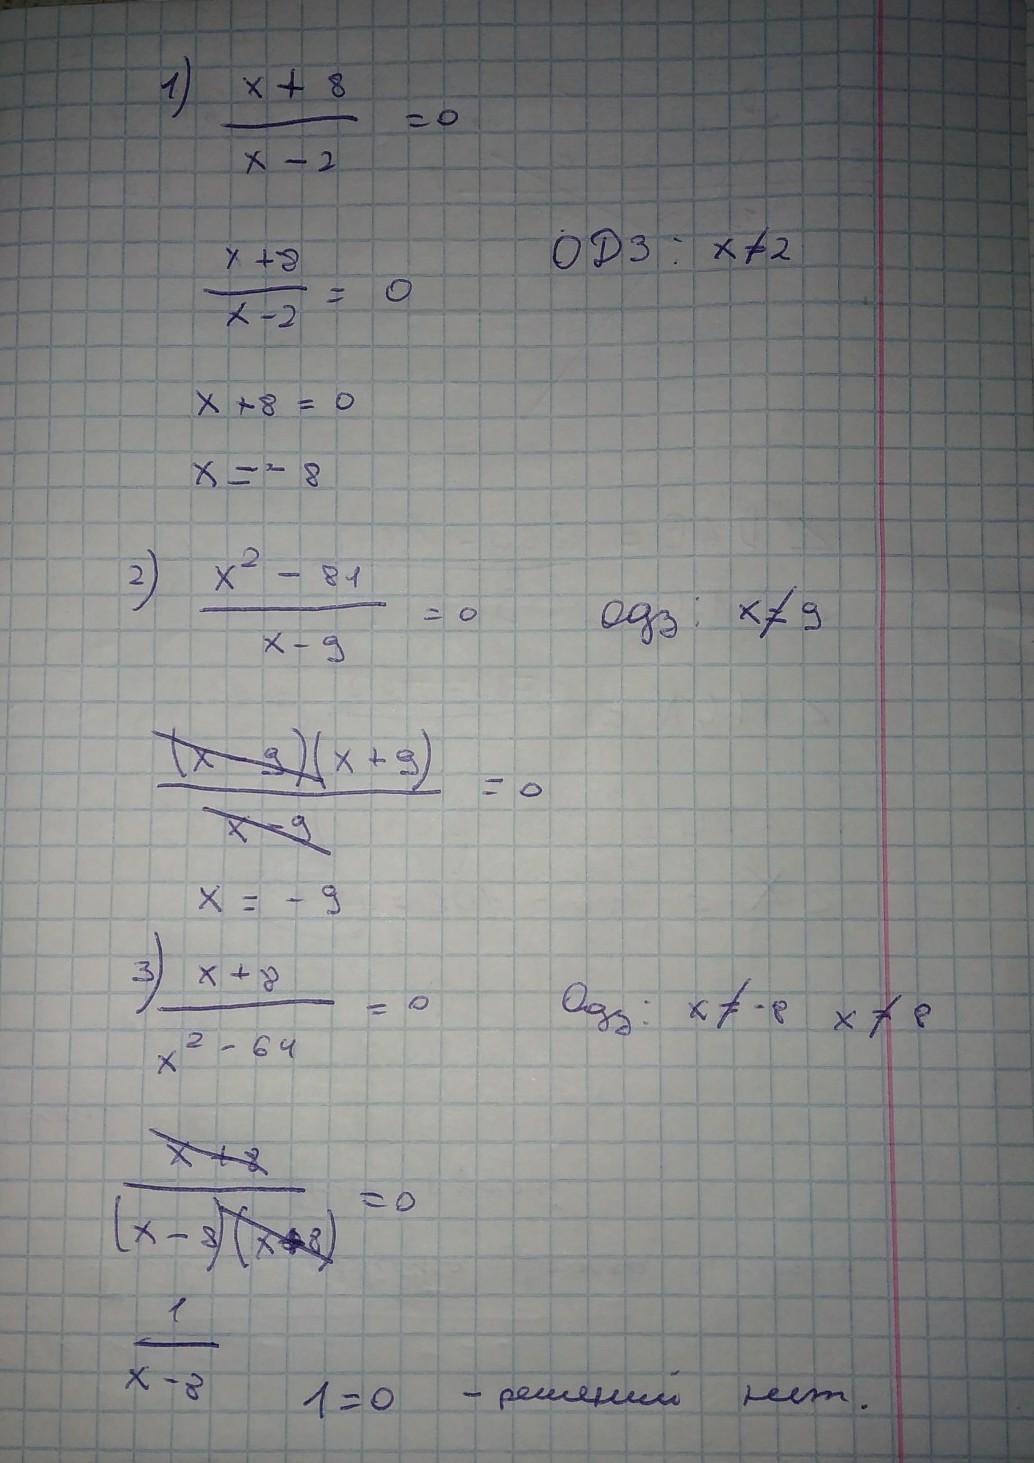 1) x + 8
x - 2 = 0
x + 8
x - 2 = 0 ОДЗ: x ≠ 2
x + 8 = 0
x = - 8
2) x² - 81
x - 9 = 0 Одз: x ≠ 9
(x - 9)(x + 9)
x - 9 = 0
x = - 9
3) x + 8
x² - 64 = 0 Одз: x ≠ -8 x ≠ 8
x + 8
(x - 8)(x+8) = 0
1
x - 8
1 = 0 - решений нет.